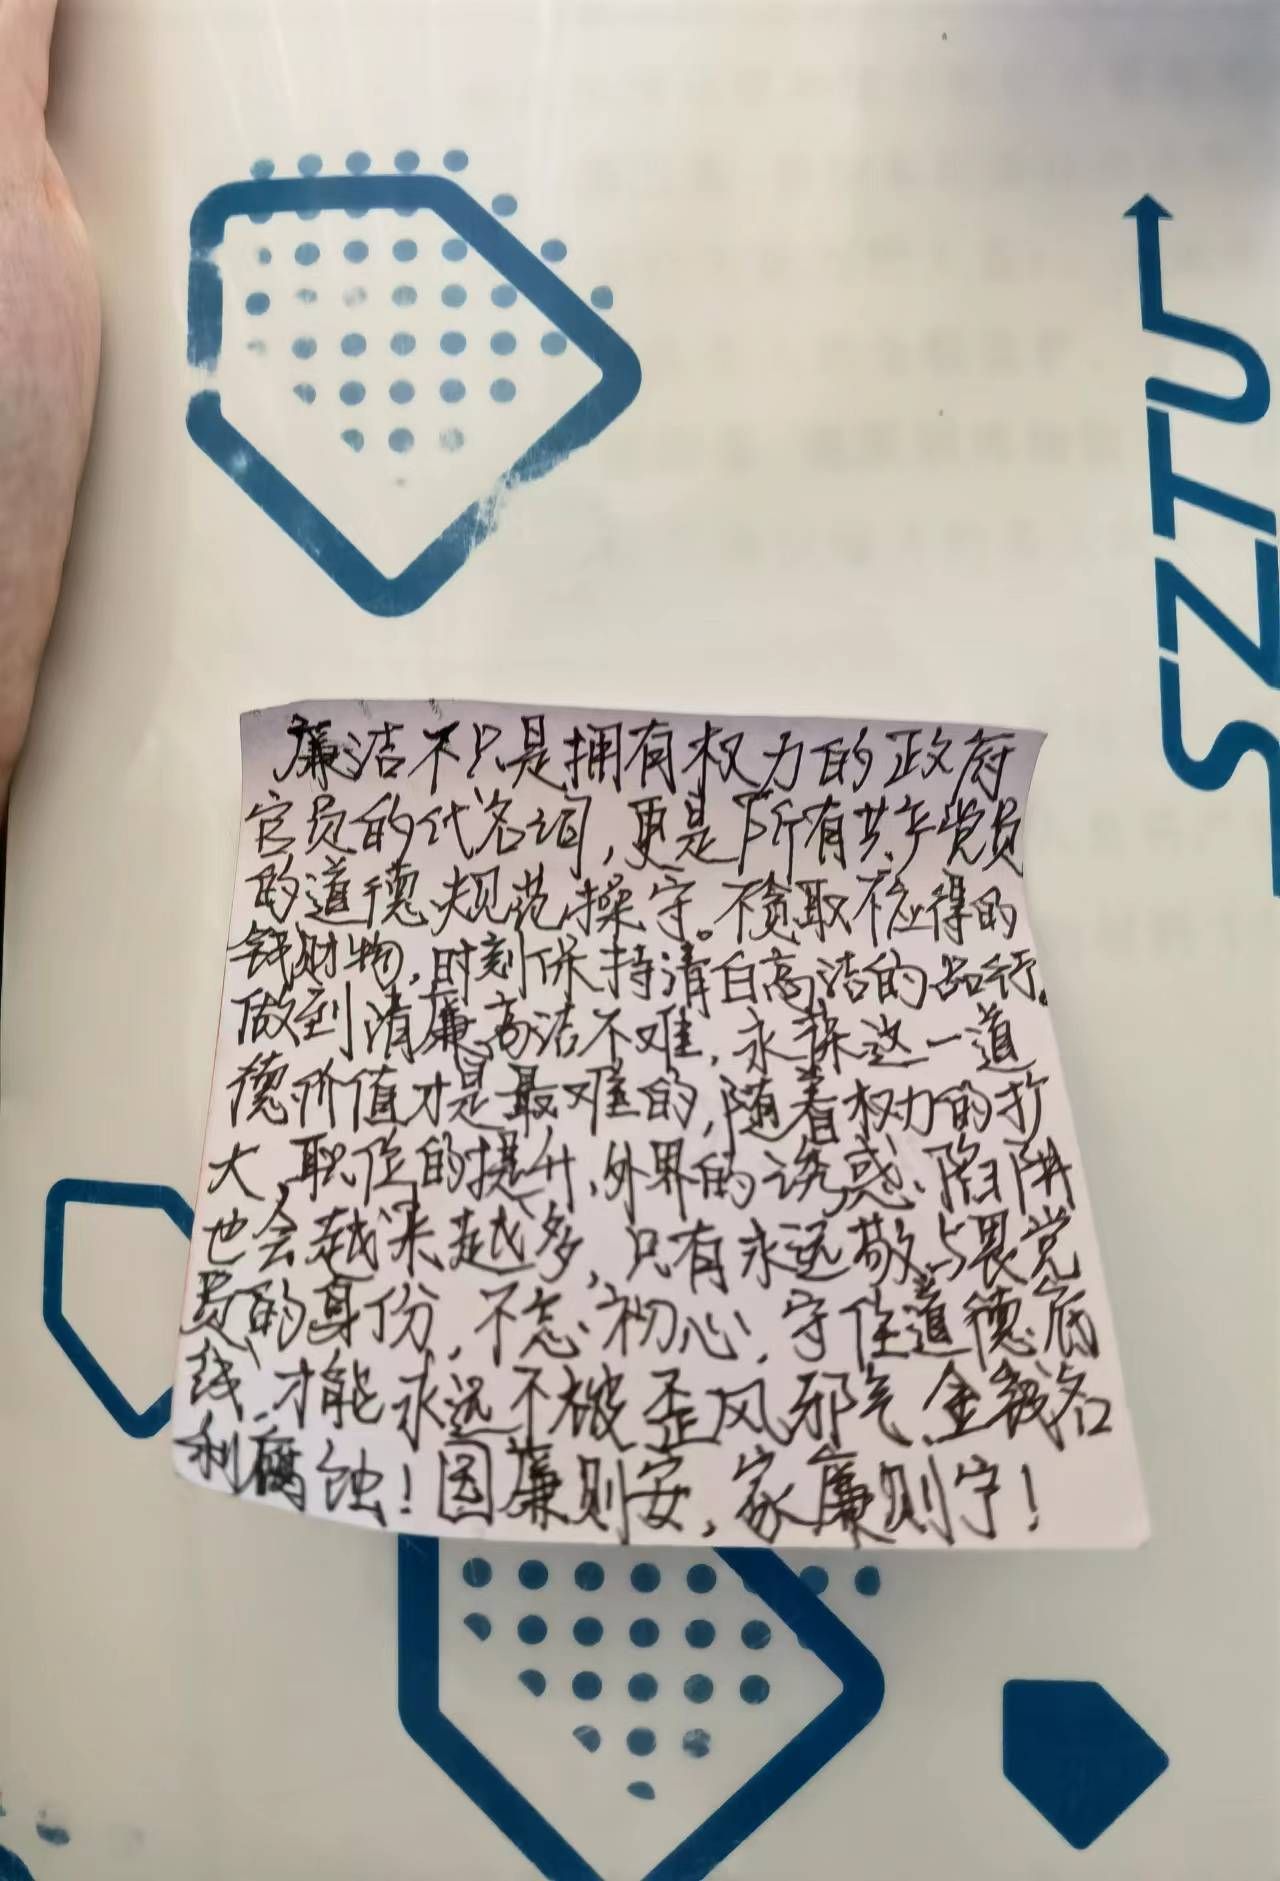 廉洁不只是拥有权力的政府
官员的代名词,更是所有共产党员
的道德规范操守。不贪取不应得的
钱财物,时刻保持清白高洁的品行。
做到清廉高洁不难,永葆这一道
德价值才是最难的,随着权力的扩
大,职位的提升,外界的诱惑、陷阱
也会越来越多,只有永远敬与畏党
员的身份,不忘初心,守住道德底
线,才能永远不被歪风邪气、金钱名
利腐蚀!国廉则安,家廉则宁!
SZTU